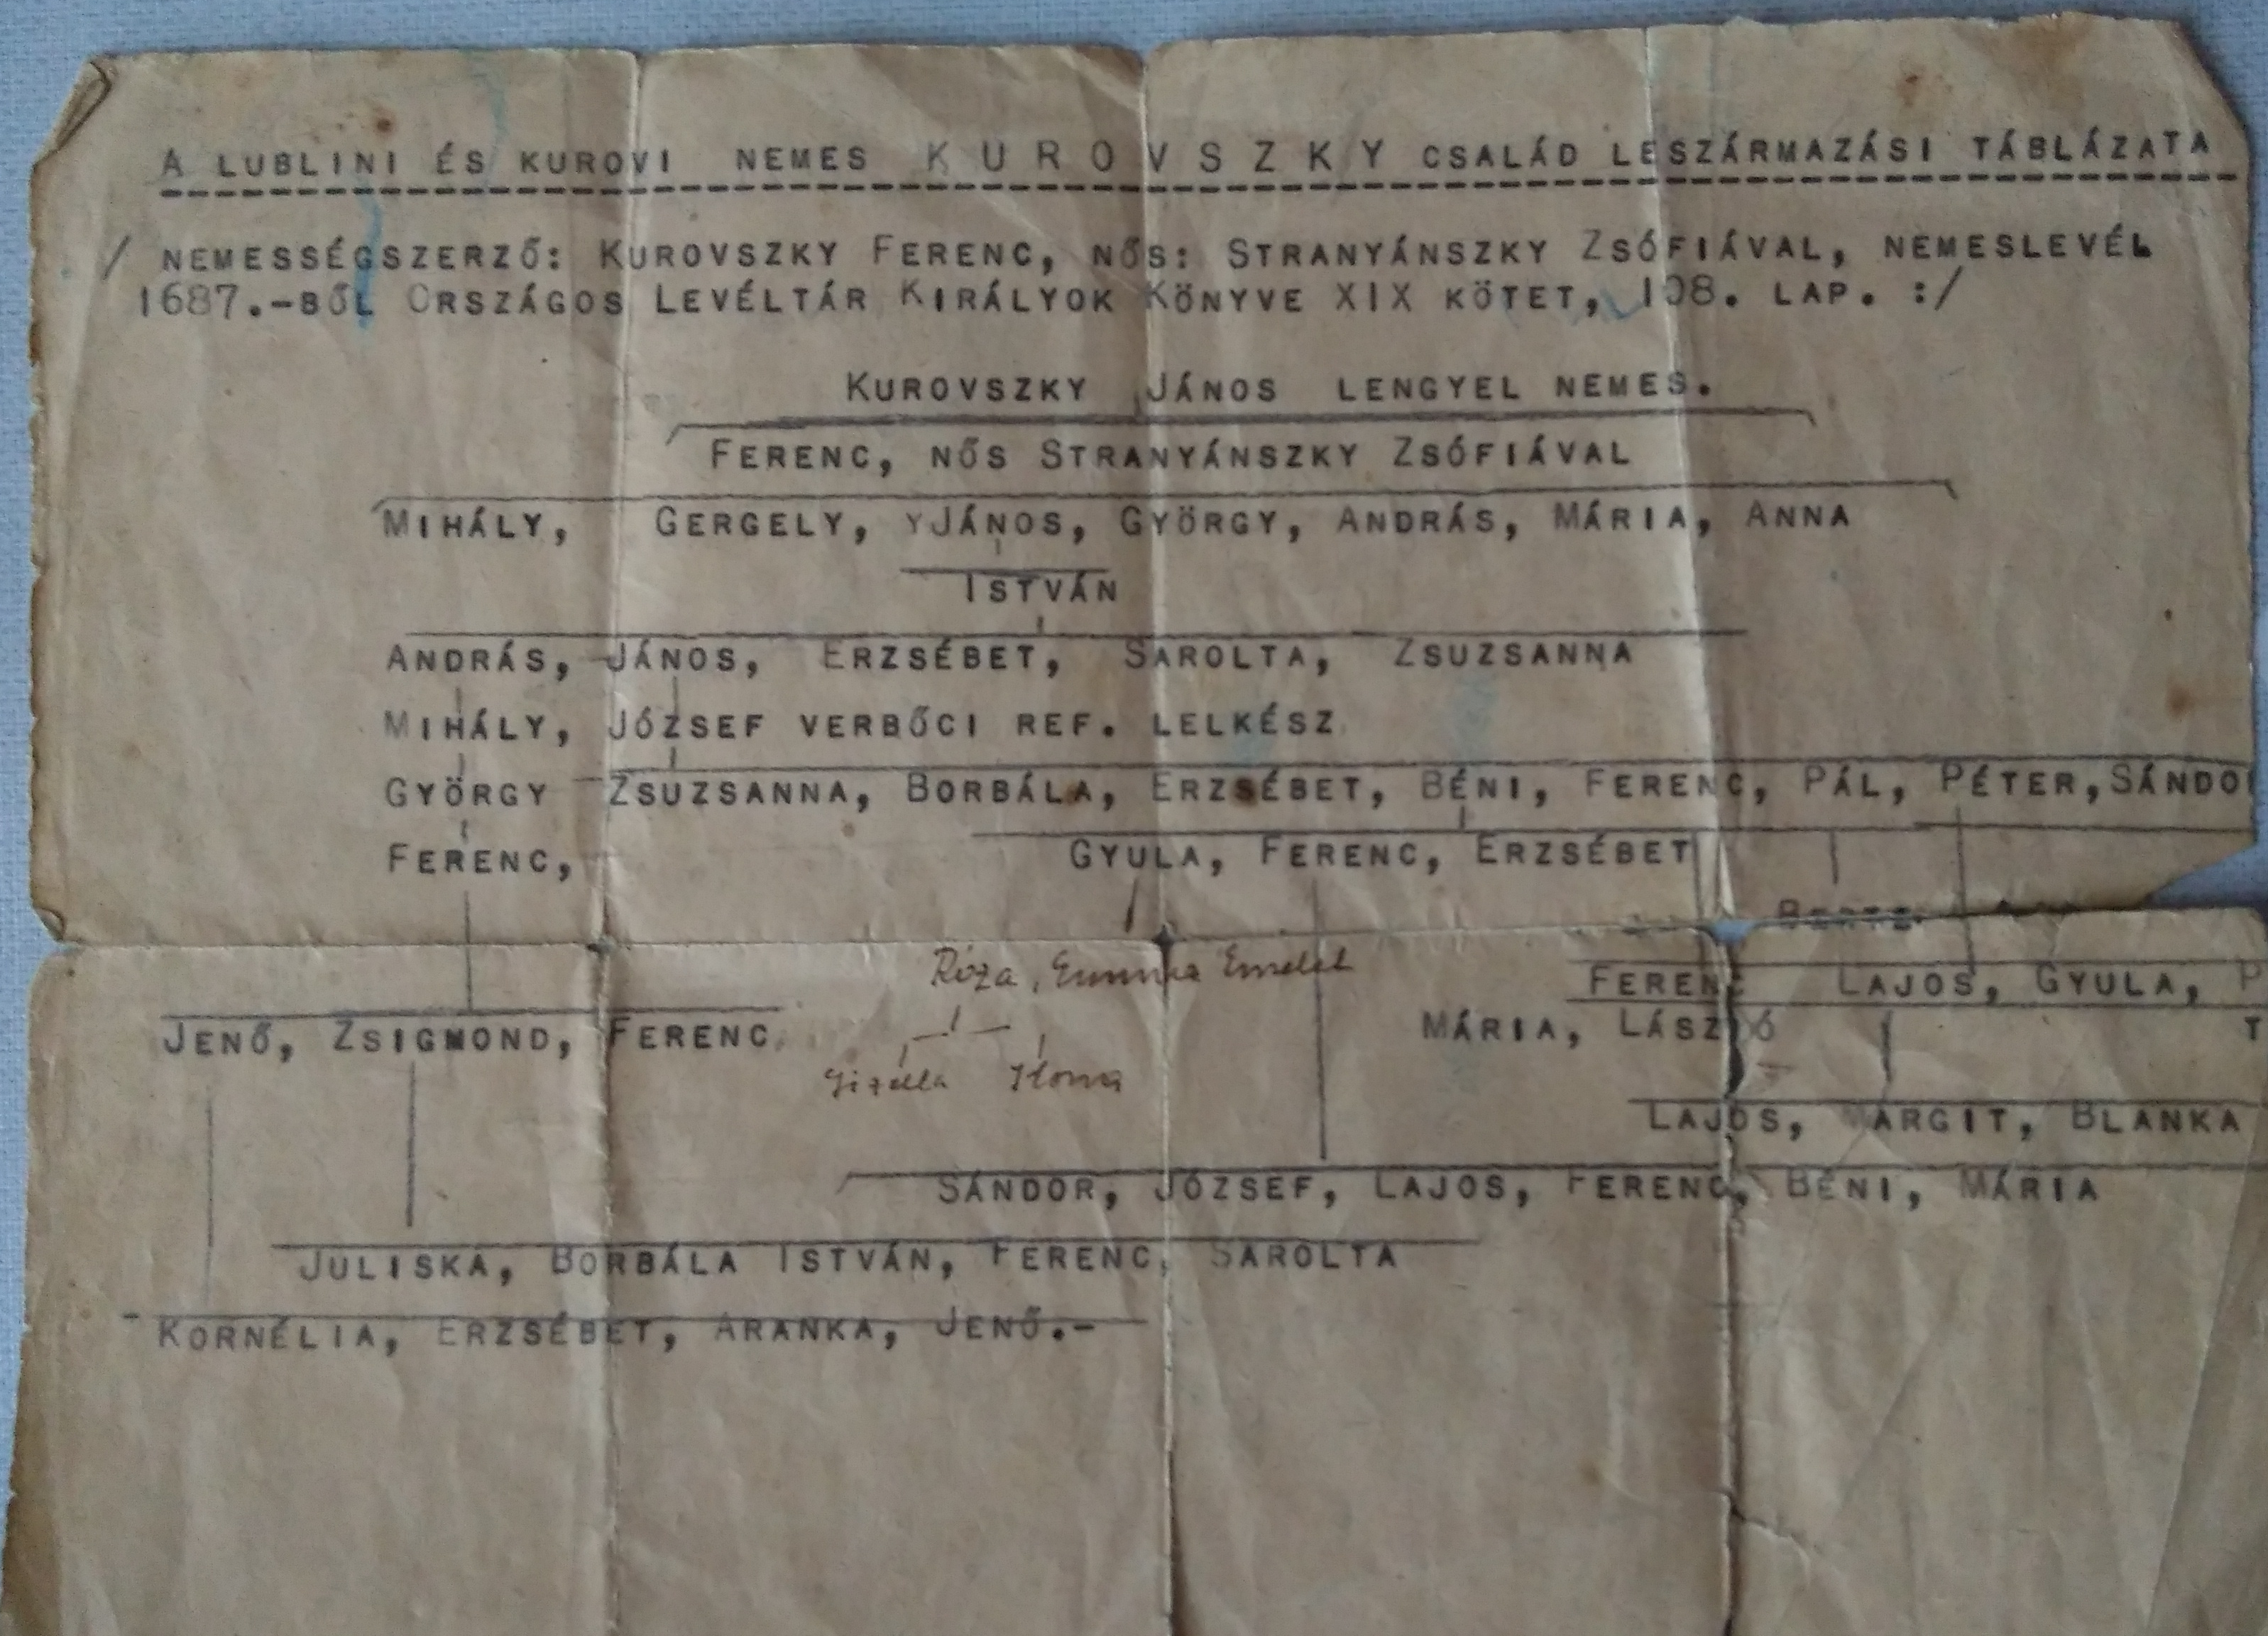 A LUBLINI ÉS KUROVI NEMES KUROVSZKY CSALÁD LESZÁRMAZÁSI TÁBLÁZATA
/ NEMESSÉGSZERZŐ: KUROVSZKY FERENC, NŐS: STRANYÁNSZKY ZSÓFIÁVAL, NEMESLEVÉL
1687.-BŐL ORSZÁGOS LEVÉLTÁR KIRÁLYOK KÖNYVE XIX KÖTET, 108. LAP. :/
KUROVSZKY JÁNOS LENGYEL NEMES.
FERENC, NŐS STRANYÁNSZKY ZSÓFIÁVAL
MIHÁLY, GERGELY, YJÁNOS, GYÖRGY, ANDRÁS, MÁRIA, ANNA
ISTVÁN
ANDRÁS, JÁNOS, ERZSÉBET, SAROLTA, ZSUZSANNA
MIHÁLY, JÓZSEF VERBŐCI REF. LELKÉSZ
GYÖRGY ZSUZSANNA, BORBÁLA, ERZSÉBET, BÉNI, FERENC, PÁL, PÉTER, SÁNDO
FERENC, GYULA, FERENC, ERZSÉBET
Róza, Emma Emelet
FERENC LAJOS, GYULA, P
JENŐ, ZSIGMOND, FERENC MÁRIA, LÁSZLÓ T
Gizella Ilona
LAJOS, MARGIT, BLANKA
SÁNDOR, JÓZSEF, LAJOS, FERENC, BÉNI, MÁRIA
JULISKA, BORBÁLA ISTVÁN, FERENC, SAROLTA
KORNÉLIA, ERZSÉBET, ARANKA, JENŐ.-